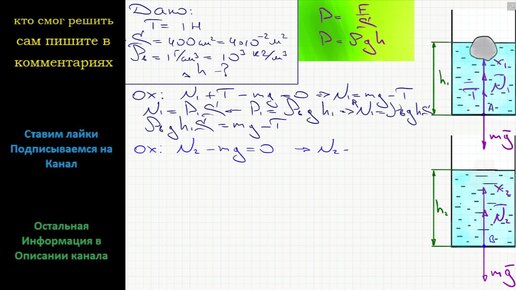 кто смог решить
сам пишите в
комментариях
Ставим лайки
Подписываемся на
Канал
Остальная
Информация в
Описании канала
Дано:
T = 1 Н
S = 400 см² = 4·10⁻² м²
ρв = 1 г/см³ = 10³ кг/м³
Δh - ?
P = F/S
P = ρgh
ox: N₁ + T - mg = 0 → N₁ = mg - T
N₁ = P₁S ← P₁ = ρвgh₁ → N₁ = ρвgh₁S
ρвgh₁S = mg - T
ox: N₂ - mg = 0 → N₂ -
h₁
x₁
T
N₁
A
mg
h₂
x₂
N₂
B
mg